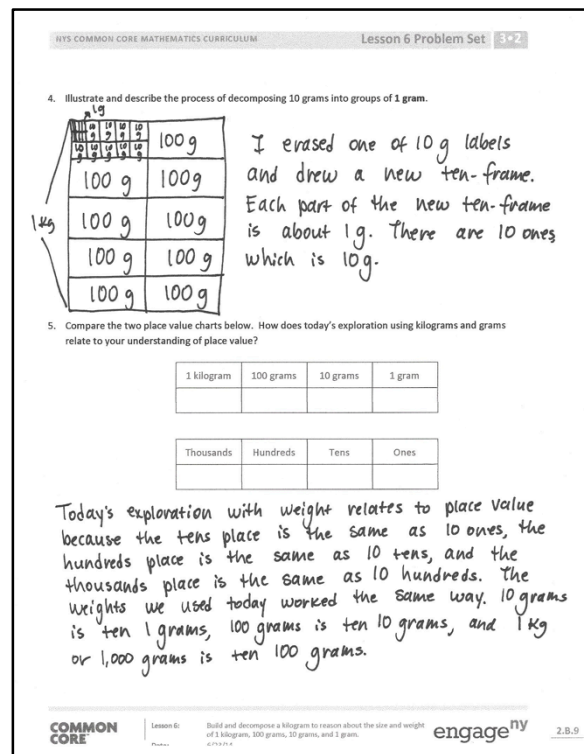 NYS COMMON CORE MATHEMATICS CURRICULUM Lesson 6 Problem Set 3•2
4. Illustrate and describe the process of decomposing 10 grams into groups of 1 gram.
1g
10 g 10 g 10 g 10 g
10 g 10 g 10 g 10 g 10 g
100 g
100 g 100 g
1 kg 100 g 100 g
100 g 100 g
100 g 100 g
I erased one of 10 g labels
and drew a new ten-frame.
Each part of the new ten-frame
is about 1g. There are 10 ones
which is 10g.
5. Compare the two place value charts below. How does today's exploration using kilograms and grams
relate to your understanding of place value?
1 kilogram 100 grams 10 grams 1 gram
Thousands Hundreds Tens Ones
Today's exploration with weight relates to place value
because the tens place is the same as 10 ones, the
hundreds place is the same as 10 tens, and the
thousands place is the same as 10 hundreds. The
weights we used today worked the same way. 10 grams
is ten 1 grams, 100 grams is ten 10 grams, and 1 kg
or 1,000 grams is ten 100 grams.
COMMON
CORE
Lesson 6: Build and decompose a kilogram to reason about the size and weight
of 1 kilogram, 100 grams, 10 grams, and 1 gram.
engage ny
2.B.9